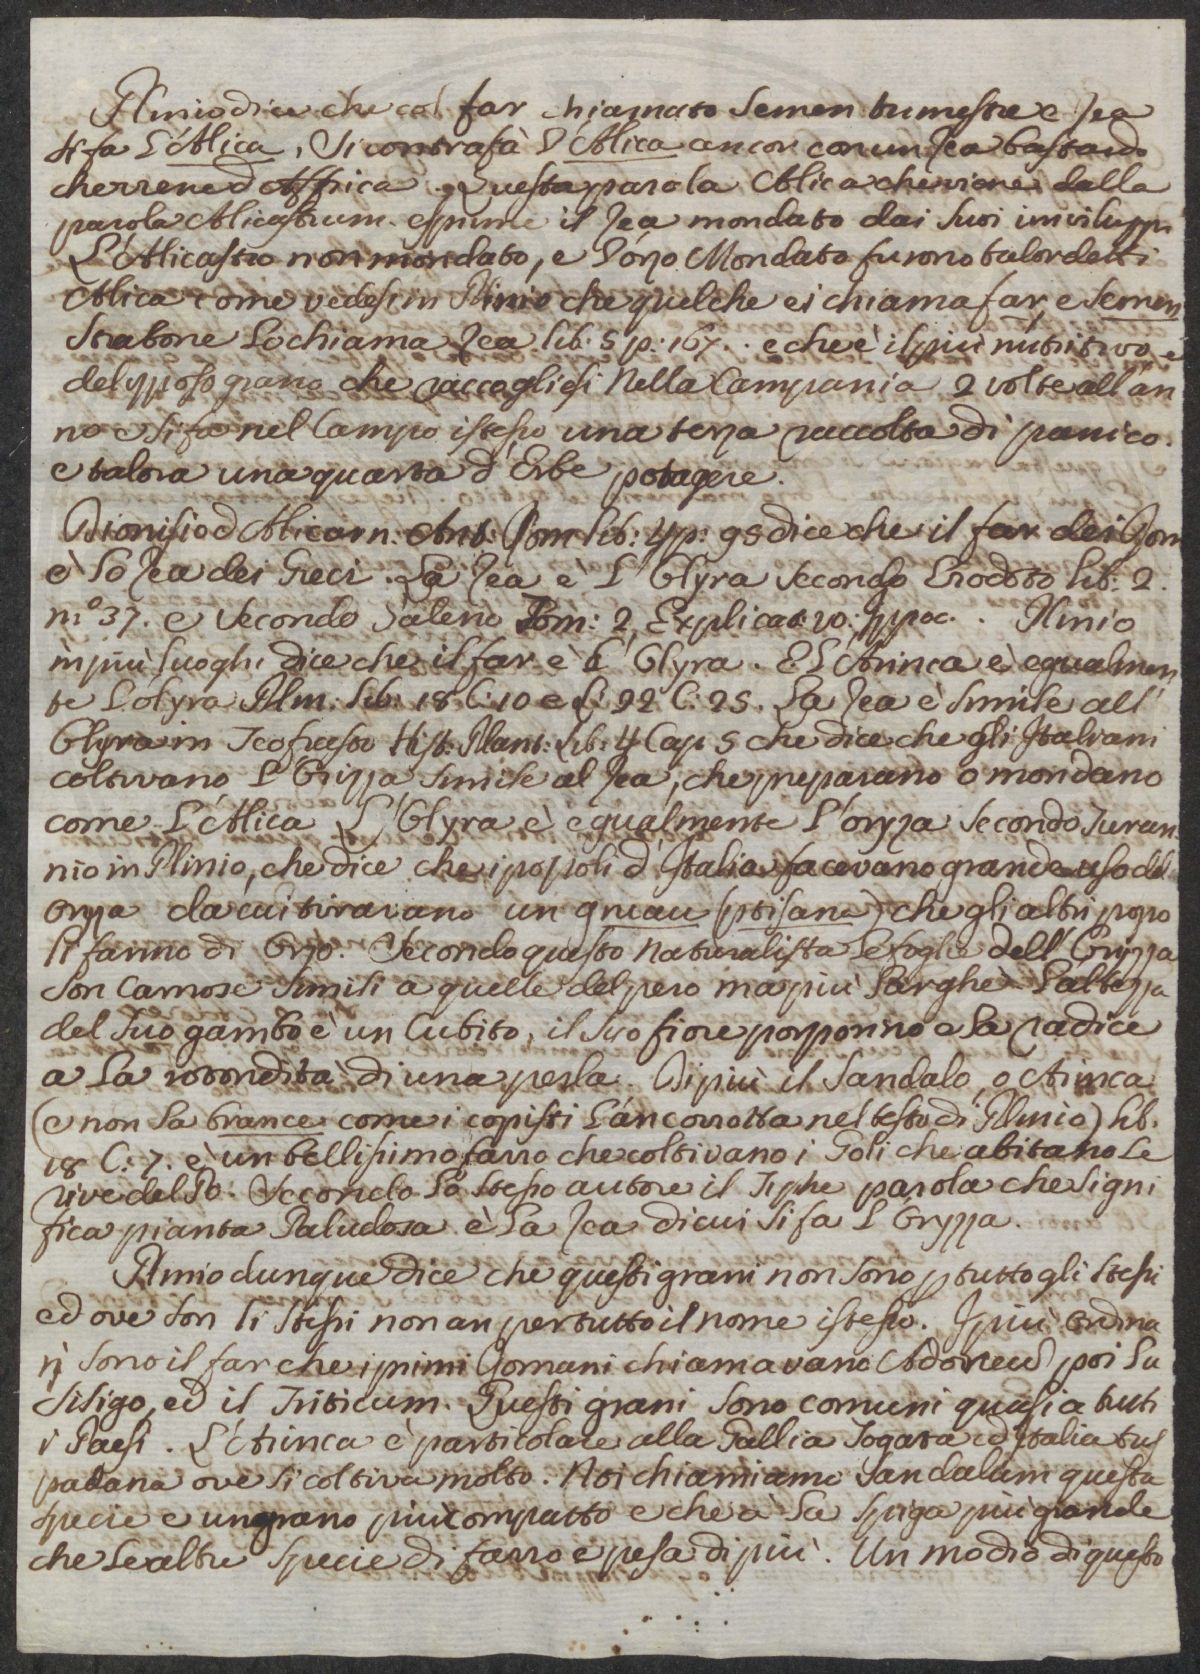 Plinio dice che col far chiamato Semen trimestre e Zea
si fa L'Alica, Si contrafà L'Alica ancor con un Zea bastardo
che viene d'Affrica. Questa parola Alica che viene dalla
parola Alicastrum esprime il Zea mondato dai suoi inviluppi
L'Alicastro non mondato, e L'orzo Mondato furono talor detti
Alica come vedesi in Plinio che quel che ei chiama far, e Semen
Strabone Lo chiama Zea. lib: 5 p: 167. e che è il più nutritivo, e
del grosso grano che raccogliesi Nella Campania 2 volte all'an
no e si fa nel Campo istesso una terza raccolta di panico.
e talora una quarta d'Erbe potagere.
Dionisio d'Alicarn: Ant: Rom lib: 4 p: 95 dice che il far dei Rom
è Lo Zea dei Greci. La Zea è L'Olyra Secondo Erodoto lib: 2.
n.º 37. e Secondo Galeno Tom: 2 Explicat: vo: Ippoc. . Plinio
in più luoghi dice che il far è L'Olyra. E L'Arinca è egualmen
te L'olyra Plin: Lib: 18 C: 10 e L: 22 C: 25. La Zea è Simile all'
Olyra in Teofrasto Hist: Plant: Lib: 4 Cap 5 che dice che gli Italiani
coltivano L'Orizza simile al Zea, che preparano o mondano
come L'Alica L'Olyra è egualmente L'oryza Secondo Turan
nio in Plinio, che dice che i popoli d'Italia facevano grande uso del
Oryza da cui tiravano un gruau (ptisana) che gli altri popo
li fanno di Orzo. Secondo questo Naturalista Le foglie dell'Oryzza
Son Carnose Simili a quelle del pero ma più Larghe. L'altezza
del Suo gambo è un Cubito, il Suo fiore porporino e La radice
a La rotondità di una perla. Di più il Sandalo, o Arinca
(e non La brance come i copisti L'an corrotta nel testo di Plinio) lib.
18 C: 7. è un bellissimo farro che coltivano i Goli che abitano Le
rive del Po. Secondo Lo Stesso autore il Tiphe parola che Signi
fica pianta Paludosa è La Zea di cui si fa L'Oryzza.
Plinio dunque dice che questi grani non Sono p tutto gli Stessi
ed ove Son li Stessi non an per tutto il nome istesso. I più ordina
rj Sono il far che i primi Romani chiamavano Adoreum poi La
Siligo, ed il Triticum. Questi grani Sono comuni quasi a tutti
i Paesi. L'Arinca è particolare alla Gallia Togata ed Italia
padana ove Si coltiva molto. Noi chiamiamo Sandalum questa
Specie e un grano più compatto e che à La Spiga più grande
che Le altre Specie di farro e pesa di più. Un modio di questo